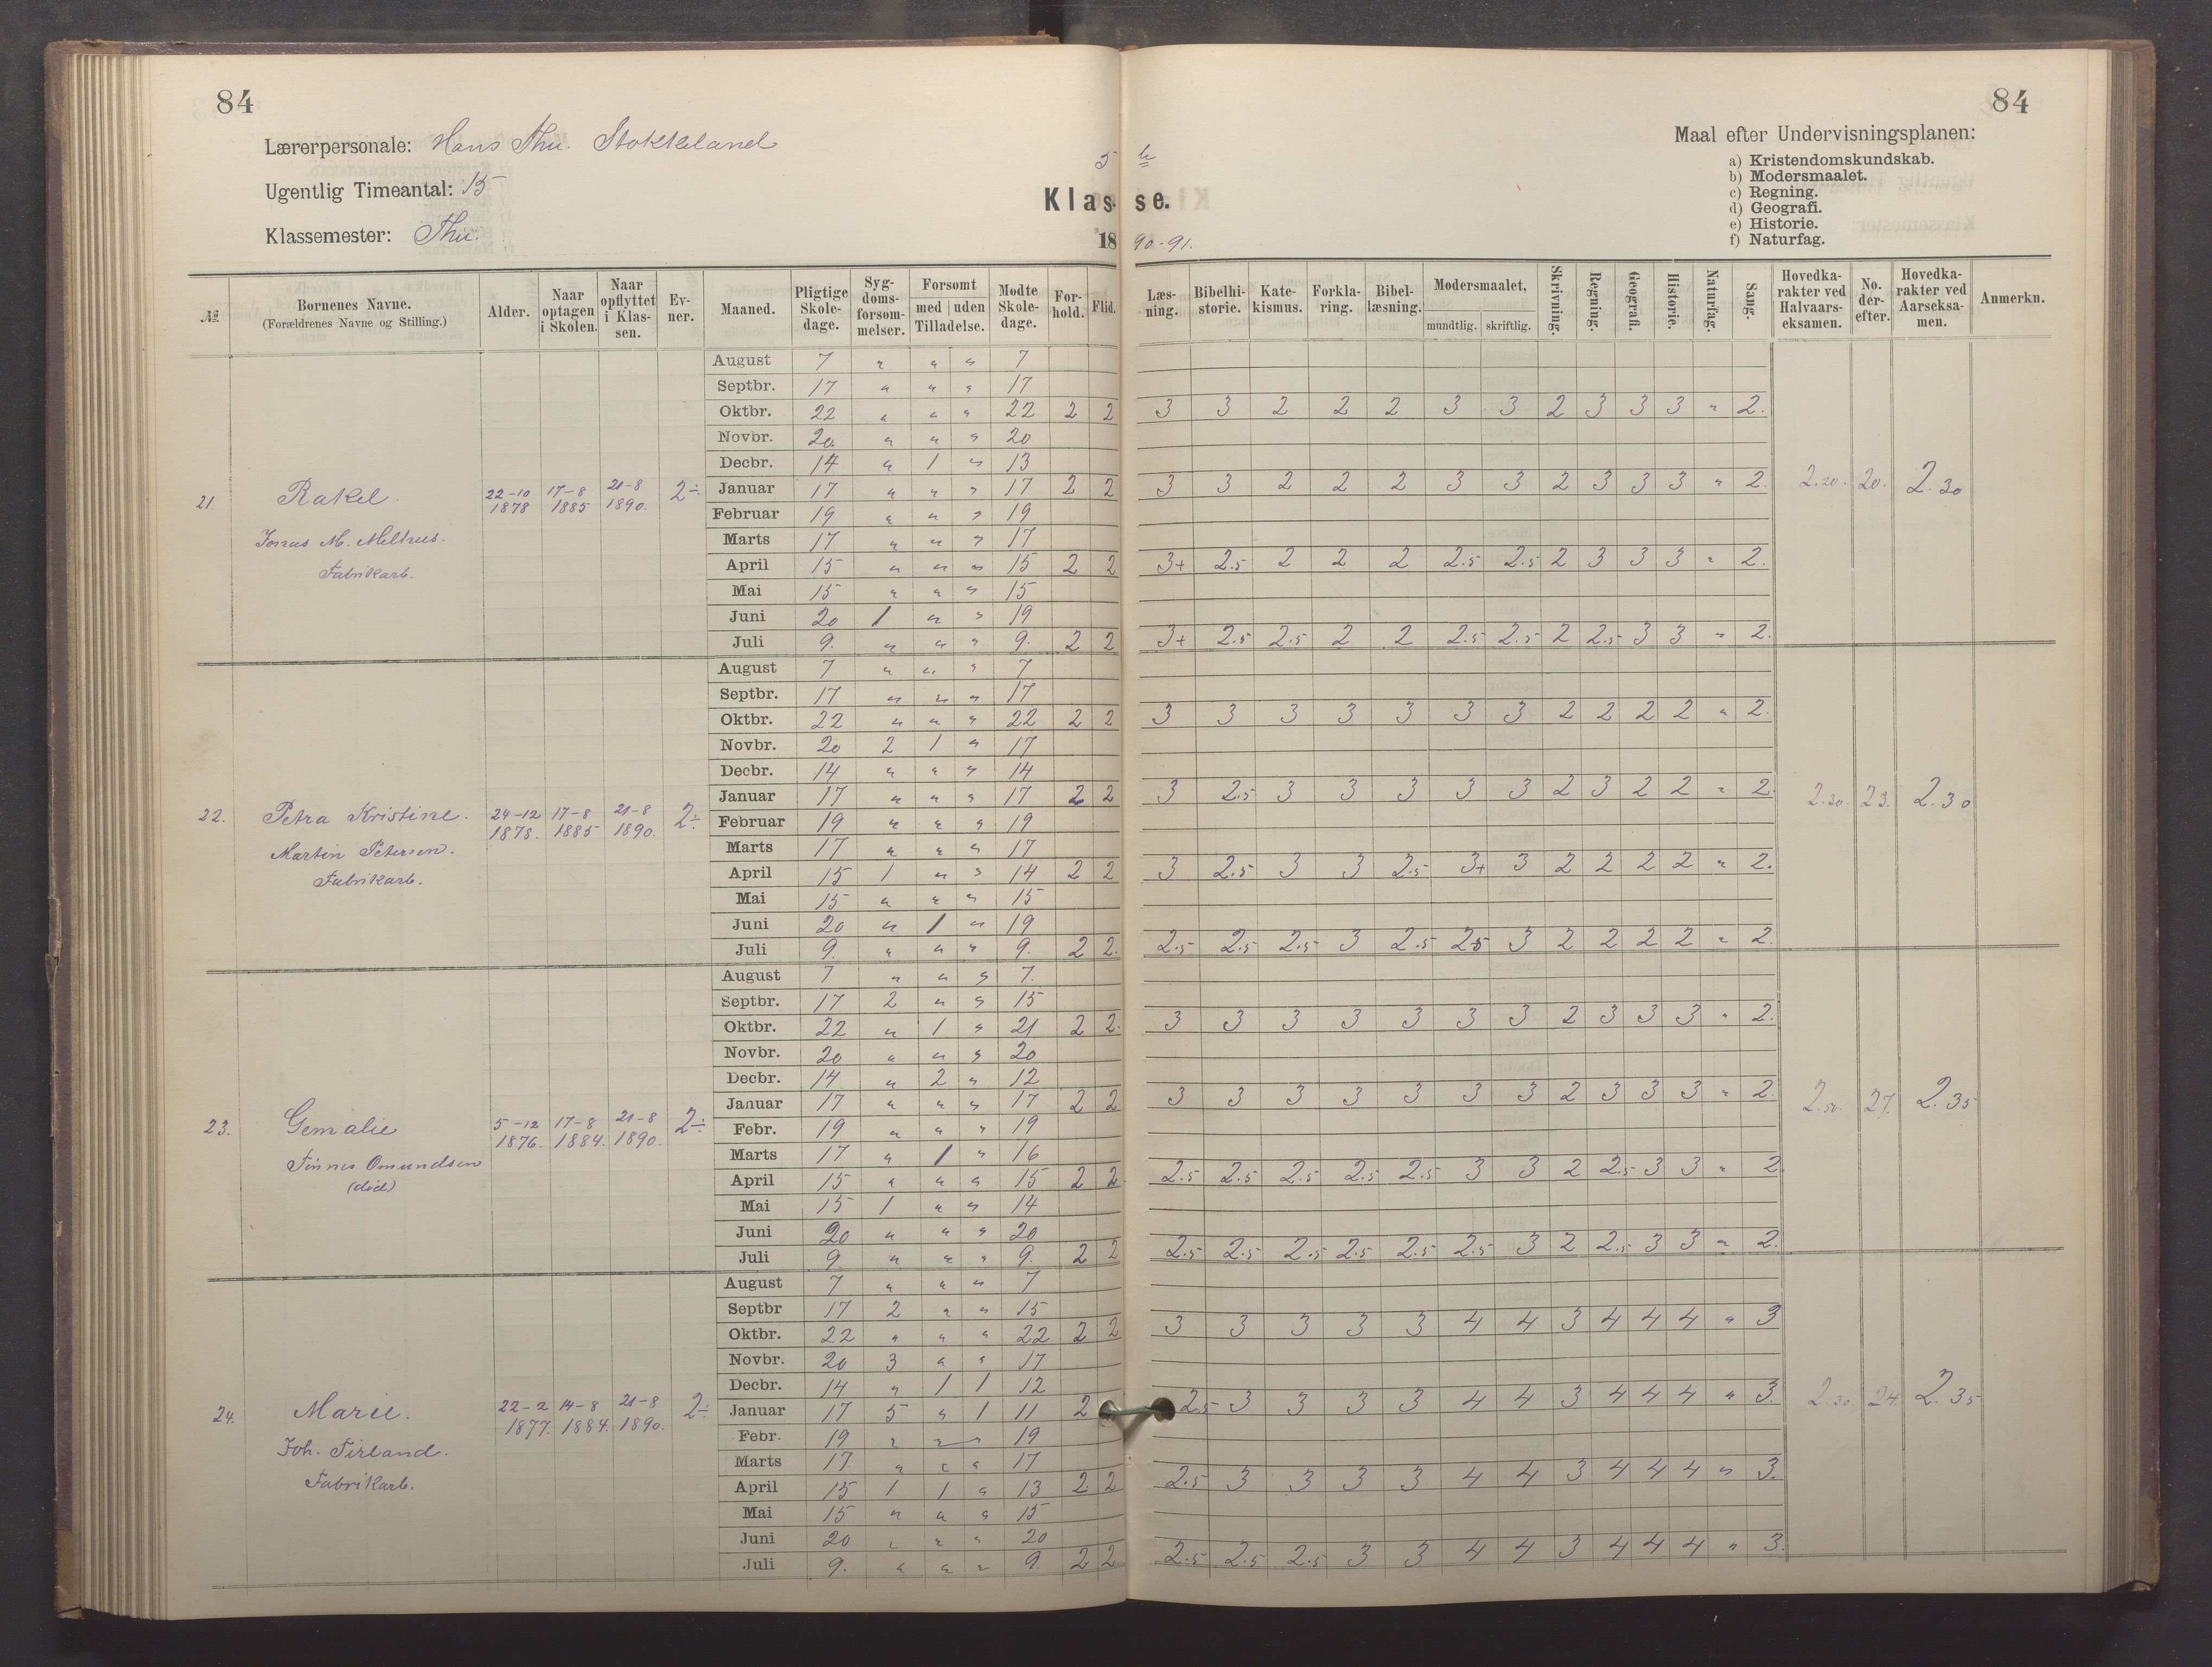 84
84
Lærerpersonale: Hans Thu. Stokkeland
Ugentlig Timeantal: 15
Klassemester: Thu.
5 te
Klasse.
1890-91.
Maal efter Undervisningsplanen:
a) Kristendomskundskab.
b) Modersmaalet.
c) Regning.
d) Geografi.
e) Historie.
f) Naturfag.
№ | Børnenes Navne. (Forældrenes Navne og Stilling.) | Alder. | Naar optagen i Skolen. | Naar opflyttet i Klassen. | Evner. | Maaned. | Pligtige Skoledage. | Sygdomsforsømmelser. | Forsømt med / uden Tilladelse. | Mødte Skoledage. | Forhold. | Flid. | Læsning. | Bibelhistorie. | Katekismus. | Forklaring. | Bibellæsning. | Modersmaalet, mundtlig. skriftlig. | Skrivning. | Regning. | Geografi. | Historie. | Naturfag. | Sang. | Hovedkarakter ved Halvaarseksamen. | No. derefter. | Hovedkarakter ved Aarseksamen. | Anmerkn.
21. Rakel. 22-10 1878 17-8 1885 21-8 1890. 2÷ 2.20. 20. 2.30
Jonas M. Melhus.
Fabrikarb.
August 7 " " " 7
Septbr. 17 " " " 17
Oktbr. 22 " " " 22 2 2 3 3 2 2 2 3 3 2 3 3 3 " 2.
Novbr. 20. " " " 20
Decbr. 14 " 1 " 13
Januar 17 " " " 17 2 2 3 3 2 2 2 3 3 2 3 3 3 " 2.
Februar 19 " " " 19
Marts 17 " " " 17
April 15 " " " 15 2 2 3+ 2.5 2 2 2 2.5 2.5 2 3 3 3 " 2.
Mai 15 " " " 15
Juni 20 1 " " 19
Juli 9. " " " 9. 2 2 3+ 2.5 2.5 2 2 2.5 2.5 2 2.5 3 3 " 2.
22. Petra Kristine. 24-12 1878. 17-8 1885 21-8 1890. 2÷ 2.30. 23. 2.30
Martin Petersen.
Fabrikarb.
August 7 " " " 7
Septbr. 17 " " " 17
Oktbr. 22 " " " 22 2 2 3 3 3 3 3 3 3 2 2 2 2 " 2.
Novbr. 20 2 1 " 17
Decbr. 14 " " " 14
Januar 17 " " " 17 2 2 3 2.5 3 3 3 3 3 2 3 2 2 " 2.
Februar 19 " " " 19
Marts 17 " " " 17
April 15 1 " " 14 2 2 3 2.5 3 3 2.5 3+ 3 2 2 2 2 " 2.
Mai 15 " " " 15
Juni 20 " 1 " 19
Juli 9. " " " 9. 2 2. 2.5 2.5 2.5 3 2.5 2.5 3 2 2 2 2 " 2.
23. Gemalie 5-12 1876. 17-8 1884. 21-8 1890. 2÷ 2.50. 27. 2.35
Tønnes Omundsen
(død)
August 7 " " " 7.
Septbr. 17 2 " " 15
Oktbr. 22 " 1 " 21 2 2. 3 3 3 3 3 3 3 2 3 3 3 " 2.
Novbr. 20 " " " 20
Decbr. 14 " 2 " 12
Januar 17 " " " 17 2 2 3 3 3 3 3 3 3 2 3 3 3 " 2.
Febr. 19 " " " 19
Marts 17 " 1 " 16
April 15 " " " 15 2 2. 2.5 2.5 2.5 2.5 2.5 3 3 2 2.5 3 3 " 2
Mai 15 1 " " 14
Juni 20 " " " 20
Juli 9. " " " 9. 2 2 2.5 2.5 2.5 2.5 2.5 2.5 3 2 2.5 3 3 " 2.
24. Marie. 22-2 1877. 14-8 1884. 21-8 1890. 2÷ 2.30 24. 2.35
Joh. Tirland.
Fabrikarb.
August 7 " " " 7
Septbr 17 2 " " 15
Oktbr. 22 " " " 22 2 2 3 3 3 3 3 4 4 3 4 4 4 " 3
Novbr. 20 3 " " 17
Decbr. 14 " 1 1 12
Januar 17 5 " 1 11 2 2.5 3 3 3 3 4 4 3 4 4 4 " 3.
Febr. 19 " " " 19
Marts 17 " " " 17
April 15 1 1 " 13 2 2 2.5 3 3 3 3 4 4 3 4 4 4 " 3.
Mai 15 " " " 15
Juni 20 " " " 20
Juli 9. " " " 9. 2 2 2.5 2.5 2.5 3 3 4 4 3 4 4 4 " 3.